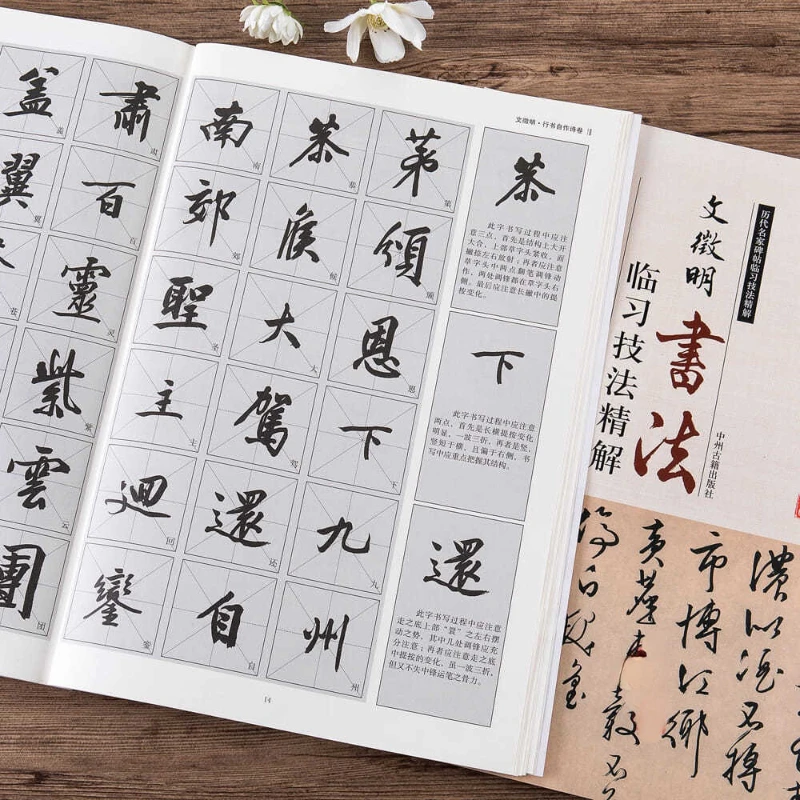 文徵明·行书自作诗卷
第頌恩下九州
恭候大駕還自
南郊聖主迴鑾
肅百靈紫雲團
蓋翼
恭
此字书写过程中应注
意三点，首先是结构上大开
大合，上部草字头紧收，而
撇捺左右放射；再者应注意
草字头中两点翻笔调锋动
作，两处调锋都在草字头右
侧。最后应注意长撇中的提
按变化。
下
此字书写过程中应注意
两点，首先是长横提按变化
明显，一波三折，再者是竖，
竖短于横，且偏于右侧，书
写中应重点把握其结构。
還
此字书写过程中应注意
走之底上部“睘”之左右摆
动之势，其中几处调锋应充
分注意；再者应注意走之底
中提按的变化，虽一波三折，
但又不失中锋运笔之骨力。
14
历代名家碑帖临习技法精解
文徵明
書法
临习技法精解
中州古籍出版社